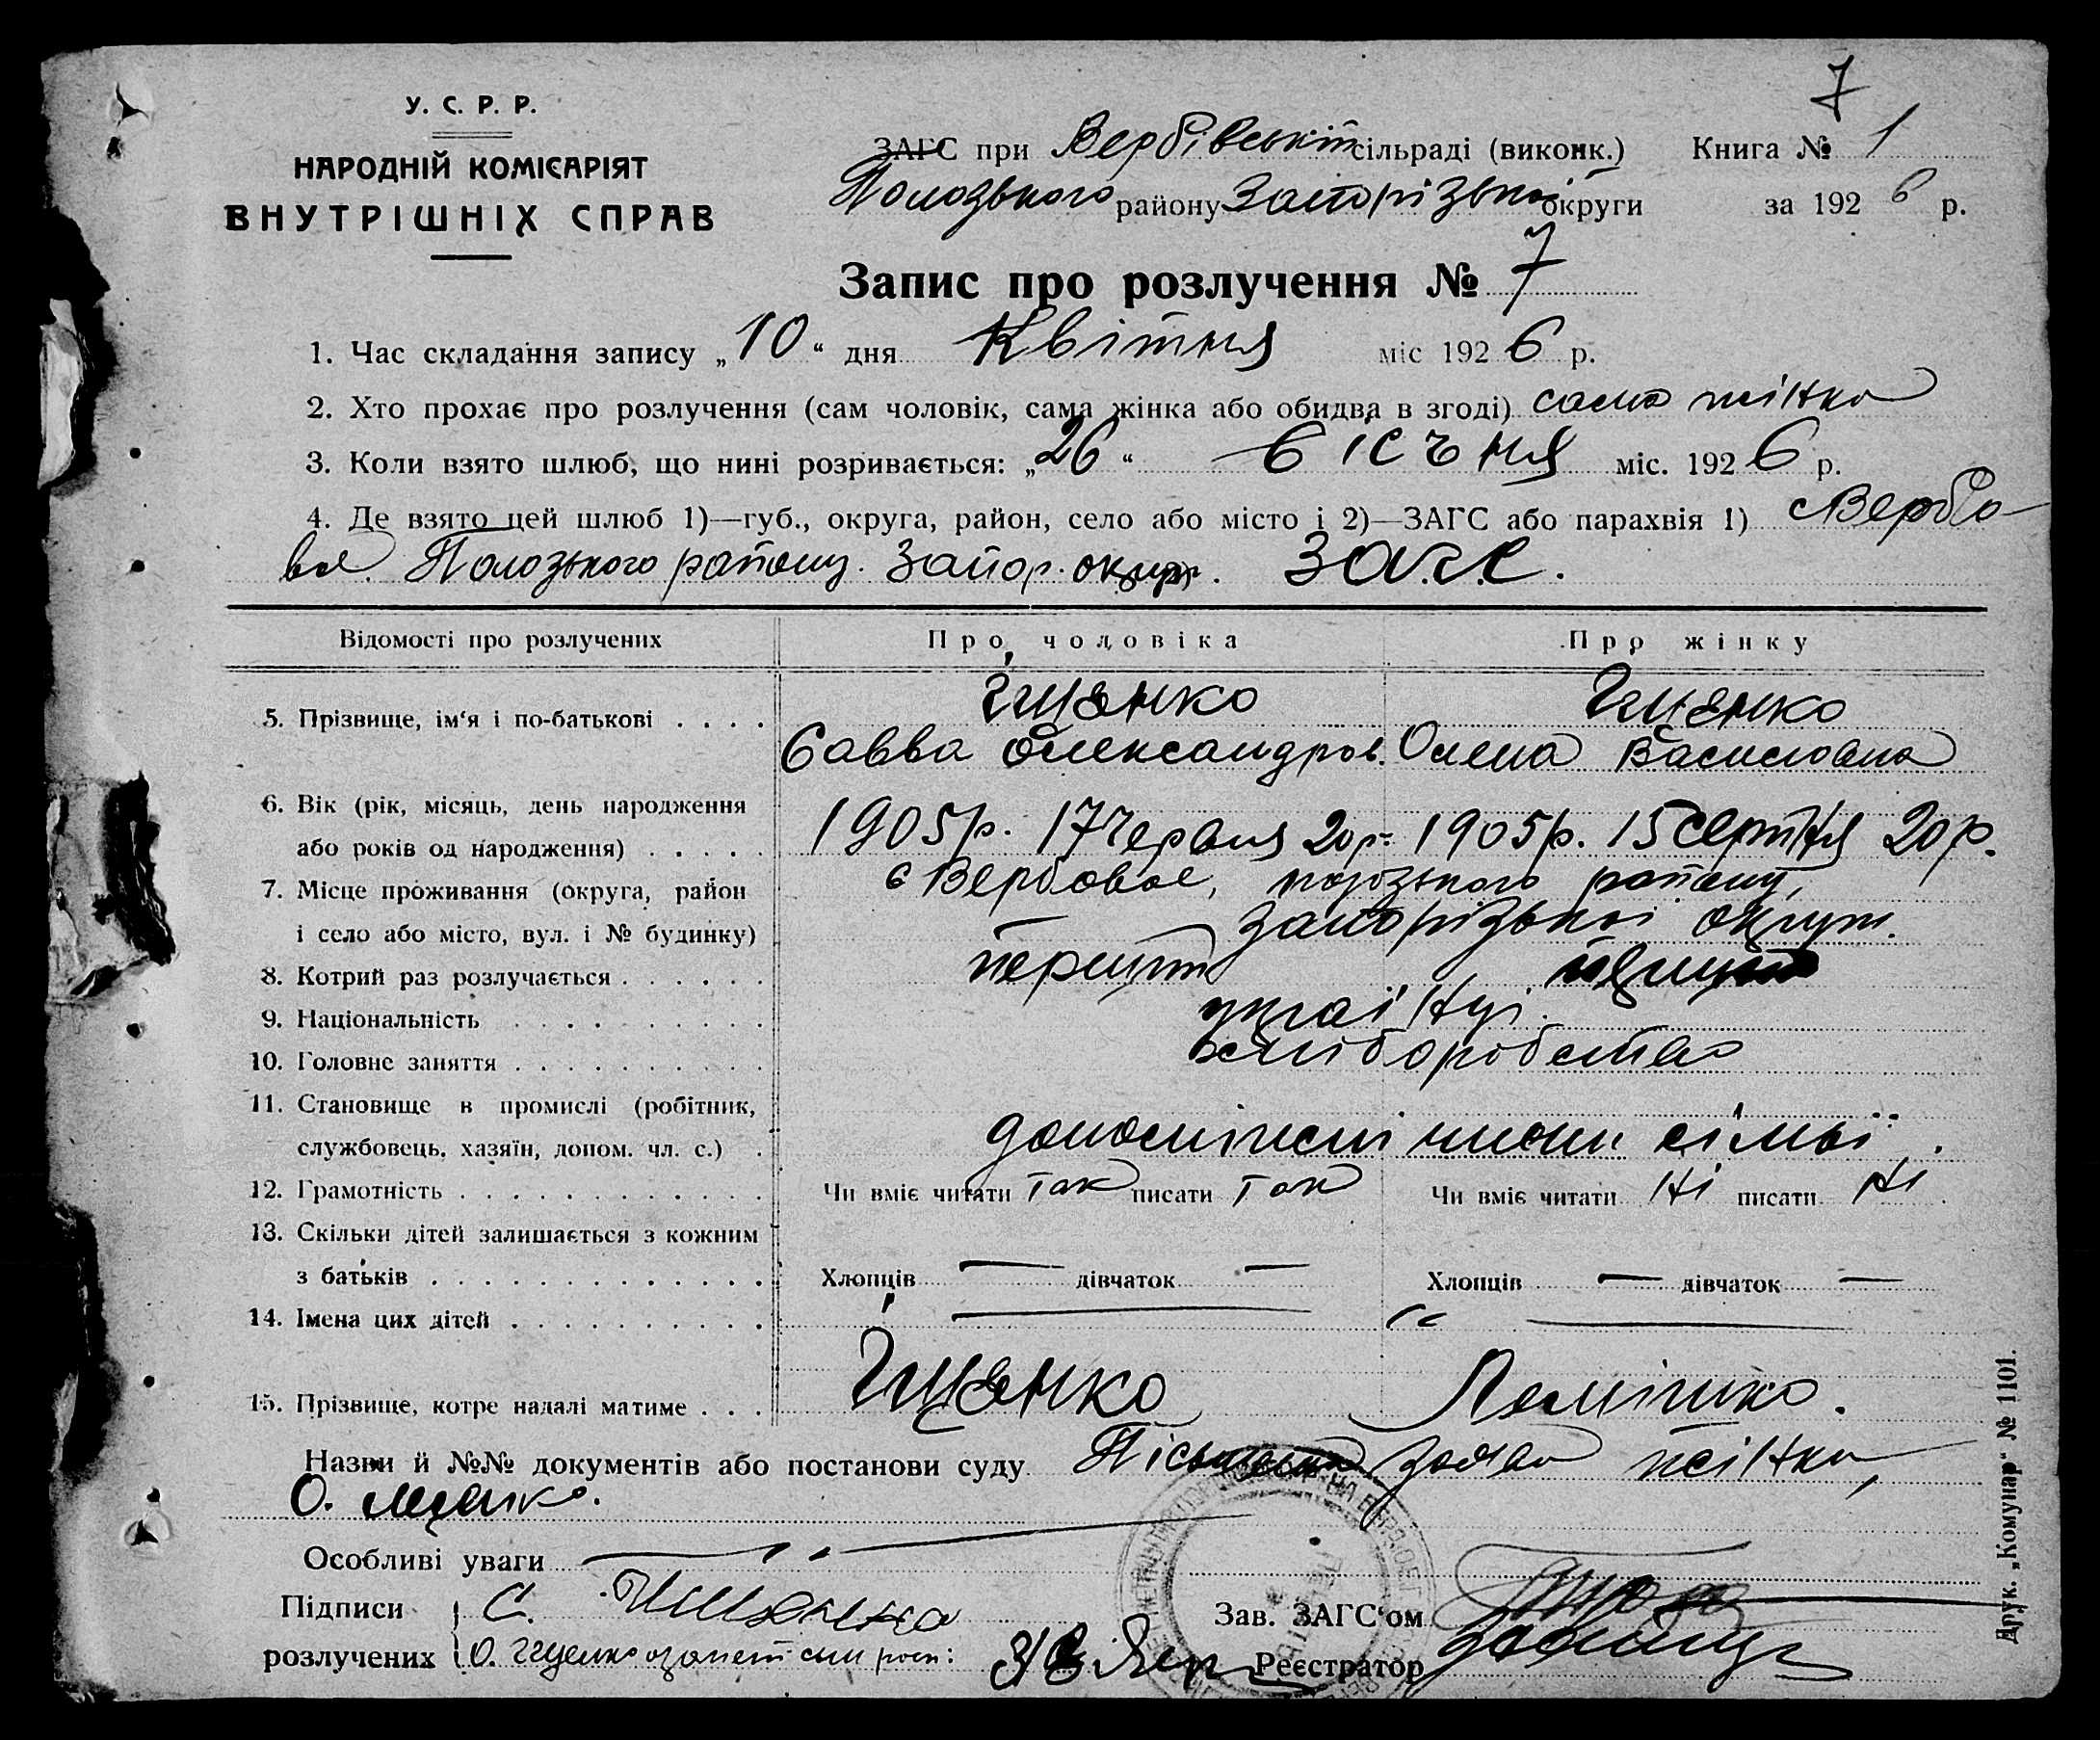 7
У. С. Р. Р.
НАРОДНІЙ КОМІСАРІЯТ
ВНУТРІШНІХ СПРАВ
ЗАГС при Вербівській сільраді (виконк.) Книга № 1
Полозького району Запорізької округи за 1926 р.
Запис про розлучення № 7
1. Час складання запису „10“ дня Квітня міс 1926 р.
2. Хто прохає про розлучення (сам чоловік, сама жінка або обидва в згоді) сама жінка
3. Коли взято шлюб, що нині розривається: „26“ Січня міс. 1926 р.
4. Де взято цей шлюб 1)—губ., округа, район, село або місто і 2)—ЗАГС або парахвія 1) с Вербо-
ве. Полозького району. Запор. окру. ЗАГС.
Відомості про розлучених Про чоловіка Про жінку
5. Прізвище, ім'я і по-батькові . . . . Іщенко Іщенко
Савва Олександров. Олена Василовна
6. Вік (рік, місяць, день народження
або років од народження) . . . . . 1905р. 17 Червня 20р. 1905р. 15 серпня 20р.
7. Місце проживання (округа, район с Вербовое, полозького району,
і село або місто, вул. і № будинку) запорізької округи.
8. Котрий раз розлучається . . . . . . перший перший
9. Національність . . . . . . . . . українці.
10. Головне заняття . . . . . . . . . . хліборобство
11. Становище в промислі (робітник,
службовець, хазяїн, допом. чл. с.) . допоміжні члени сімьї.
12. Грамотність . . . . . . . . . . . . Чи вміє читати Так писати Так Чи вміє читати Ні писати Ні.
13. Скільки дітей залишається з кожним
з батьків . . . . . . . . . . . . . Хлопців — дівчаток — Хлопців — дівчаток —
14. Імена цих дітей . . . . . . . . . . — —
15. Прізвище, котре надалі матиме . . . Іщенко Лемішко.
Назви й №№ документів або постанови суду Пісьмена заява жінки,
О. Іщенко.
Особливі уваги —
Підписи С. Ищенко Зав. ЗАГС'ом
розлучених О. Іщенко Реєстратор
Друк. „Комунар“ № 1101.